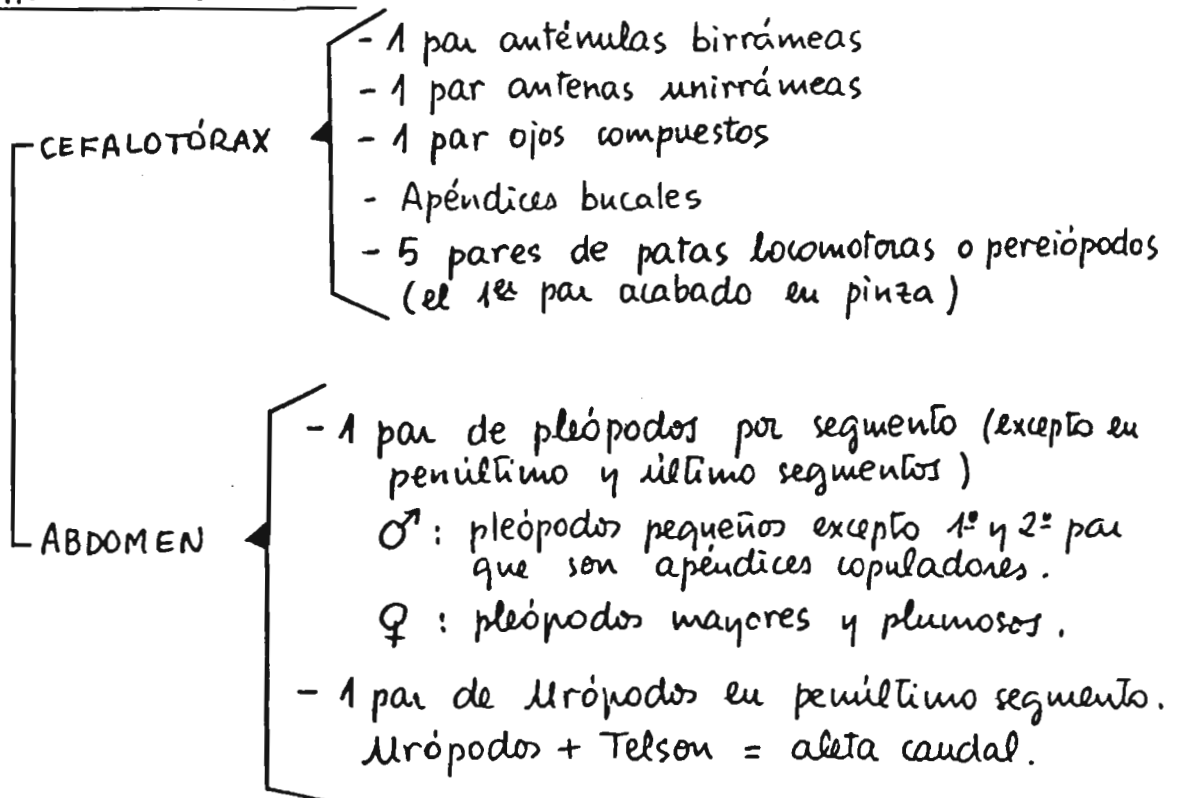 CEFALOTÓRAX
- 1 par anténulas birrámeas
- 1 par antenas unirrámeas
- 1 par ojos compuestos
- Apéndices bucales
- 5 pares de patas locomotoras o pereiópodos
(el 1er par acabado en pinza)
ABDOMEN
- 1 par de pleópodos por segmento (excepto en
penúltimo y último segmentos)
♂: pleópodos pequeños excepto 1º y 2º par
que son apéndices copuladores.
♀: pleópodos mayores y plumosos.
- 1 par de Urópodos en penúltimo segmento.
Urópodos + Telson = aleta caudal.